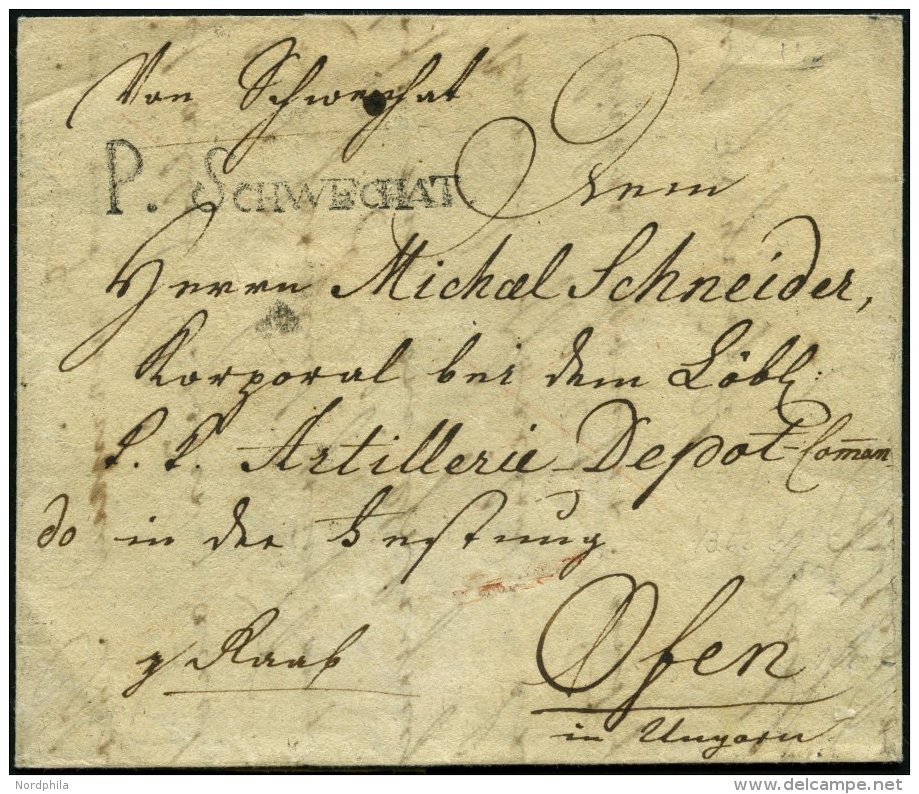 Von Schwechat
P. SCHWECHAT
Dem
Herrn Michael Schneider,
Korporal bei dem Löbl:
k. k. Artillerie-Depot-Com̅an-
do in der Festung
p Raab
Ofen
in Ungarn
Nordphila
delcampe.net